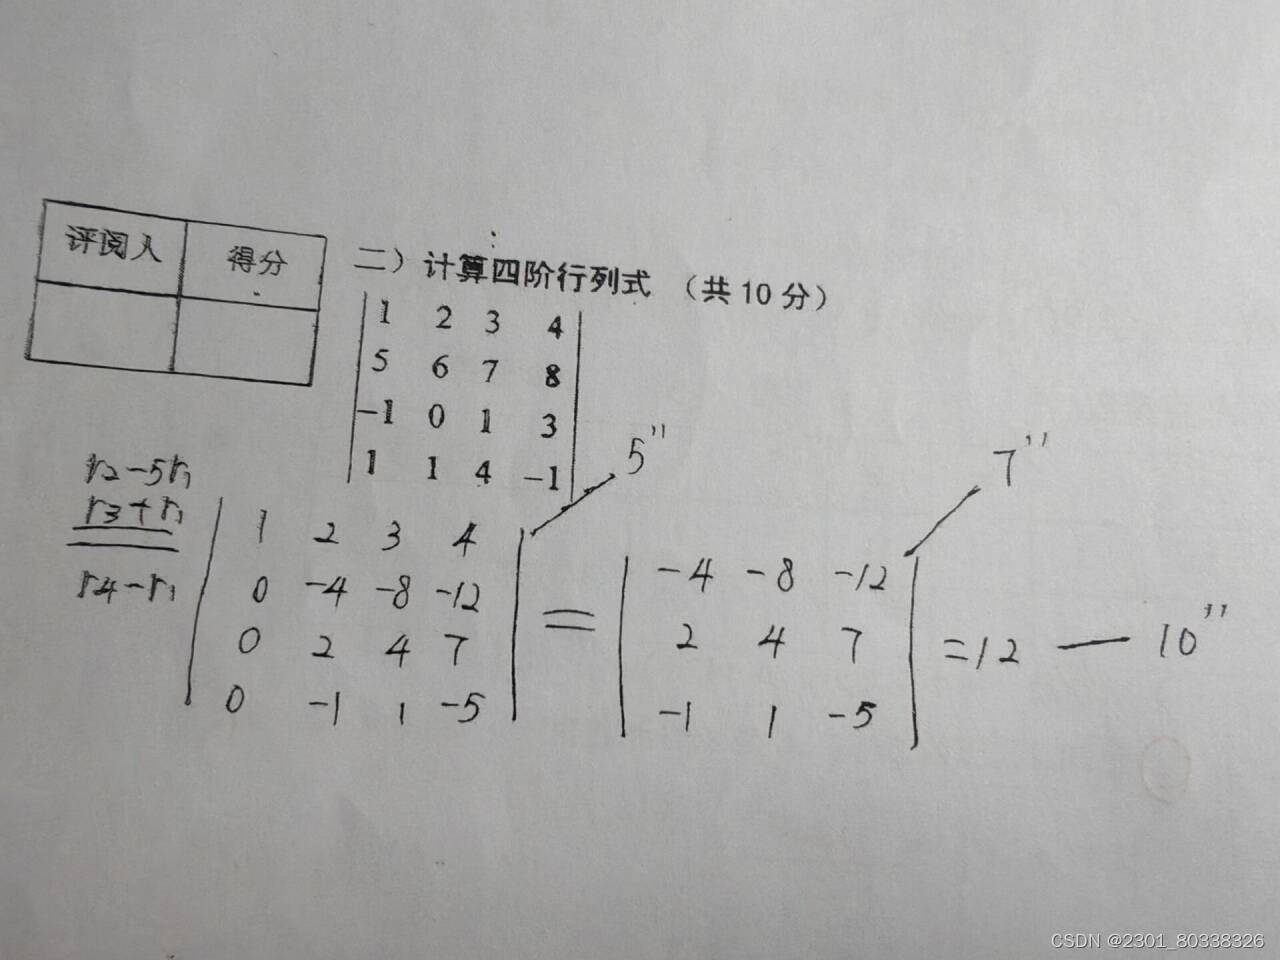 评阅人 得分
二）计算四阶行列式 （共10分）
1 2 3 4
5 6 7 8
-1 0 1 3
1 1 4 -1
5''
7''
r2-5r1
r3+r1
r4-r1
1 2 3 4
0 -4 -8 -12
0 2 4 7
0 -1 1 -5
=
-4 -8 -12
2 4 7
-1 1 -5
=12 — 10''
CSDN @2301_80338326